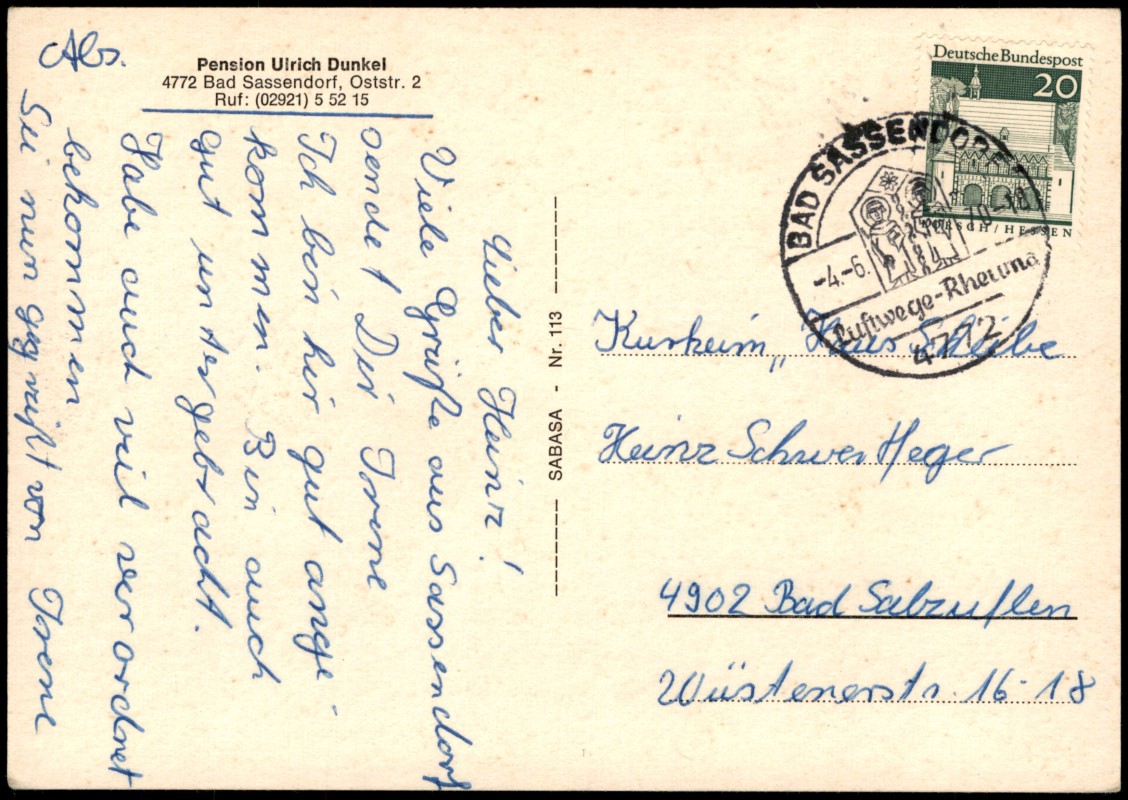 Abs.
Pension Ulrich Dunkel
4772 Bad Sassendorf, Oststr. 2
Ruf: (02921) 5 52 15
Lieber Heinz!
Viele Grüße aus Sassendorf
sendet Dir Irene
Ich bin hir gut ange-
kommen. Bin auch
gut untergebracht.
Habe auch viel verordnet
bekommen
Sei nun gegrüßt von Irene
SABASA - Nr. 113
Deutsche Bundespost
20
LORSCH/HESSEN
BAD SASSENDORF
-4.-6. 70-18
Luftwege-Rheuma
4772
Kurheim „Haus Scheibe
Heinz Schwertfeger
4902 Bad Salzuflen
Wüstenerstr. 16-18